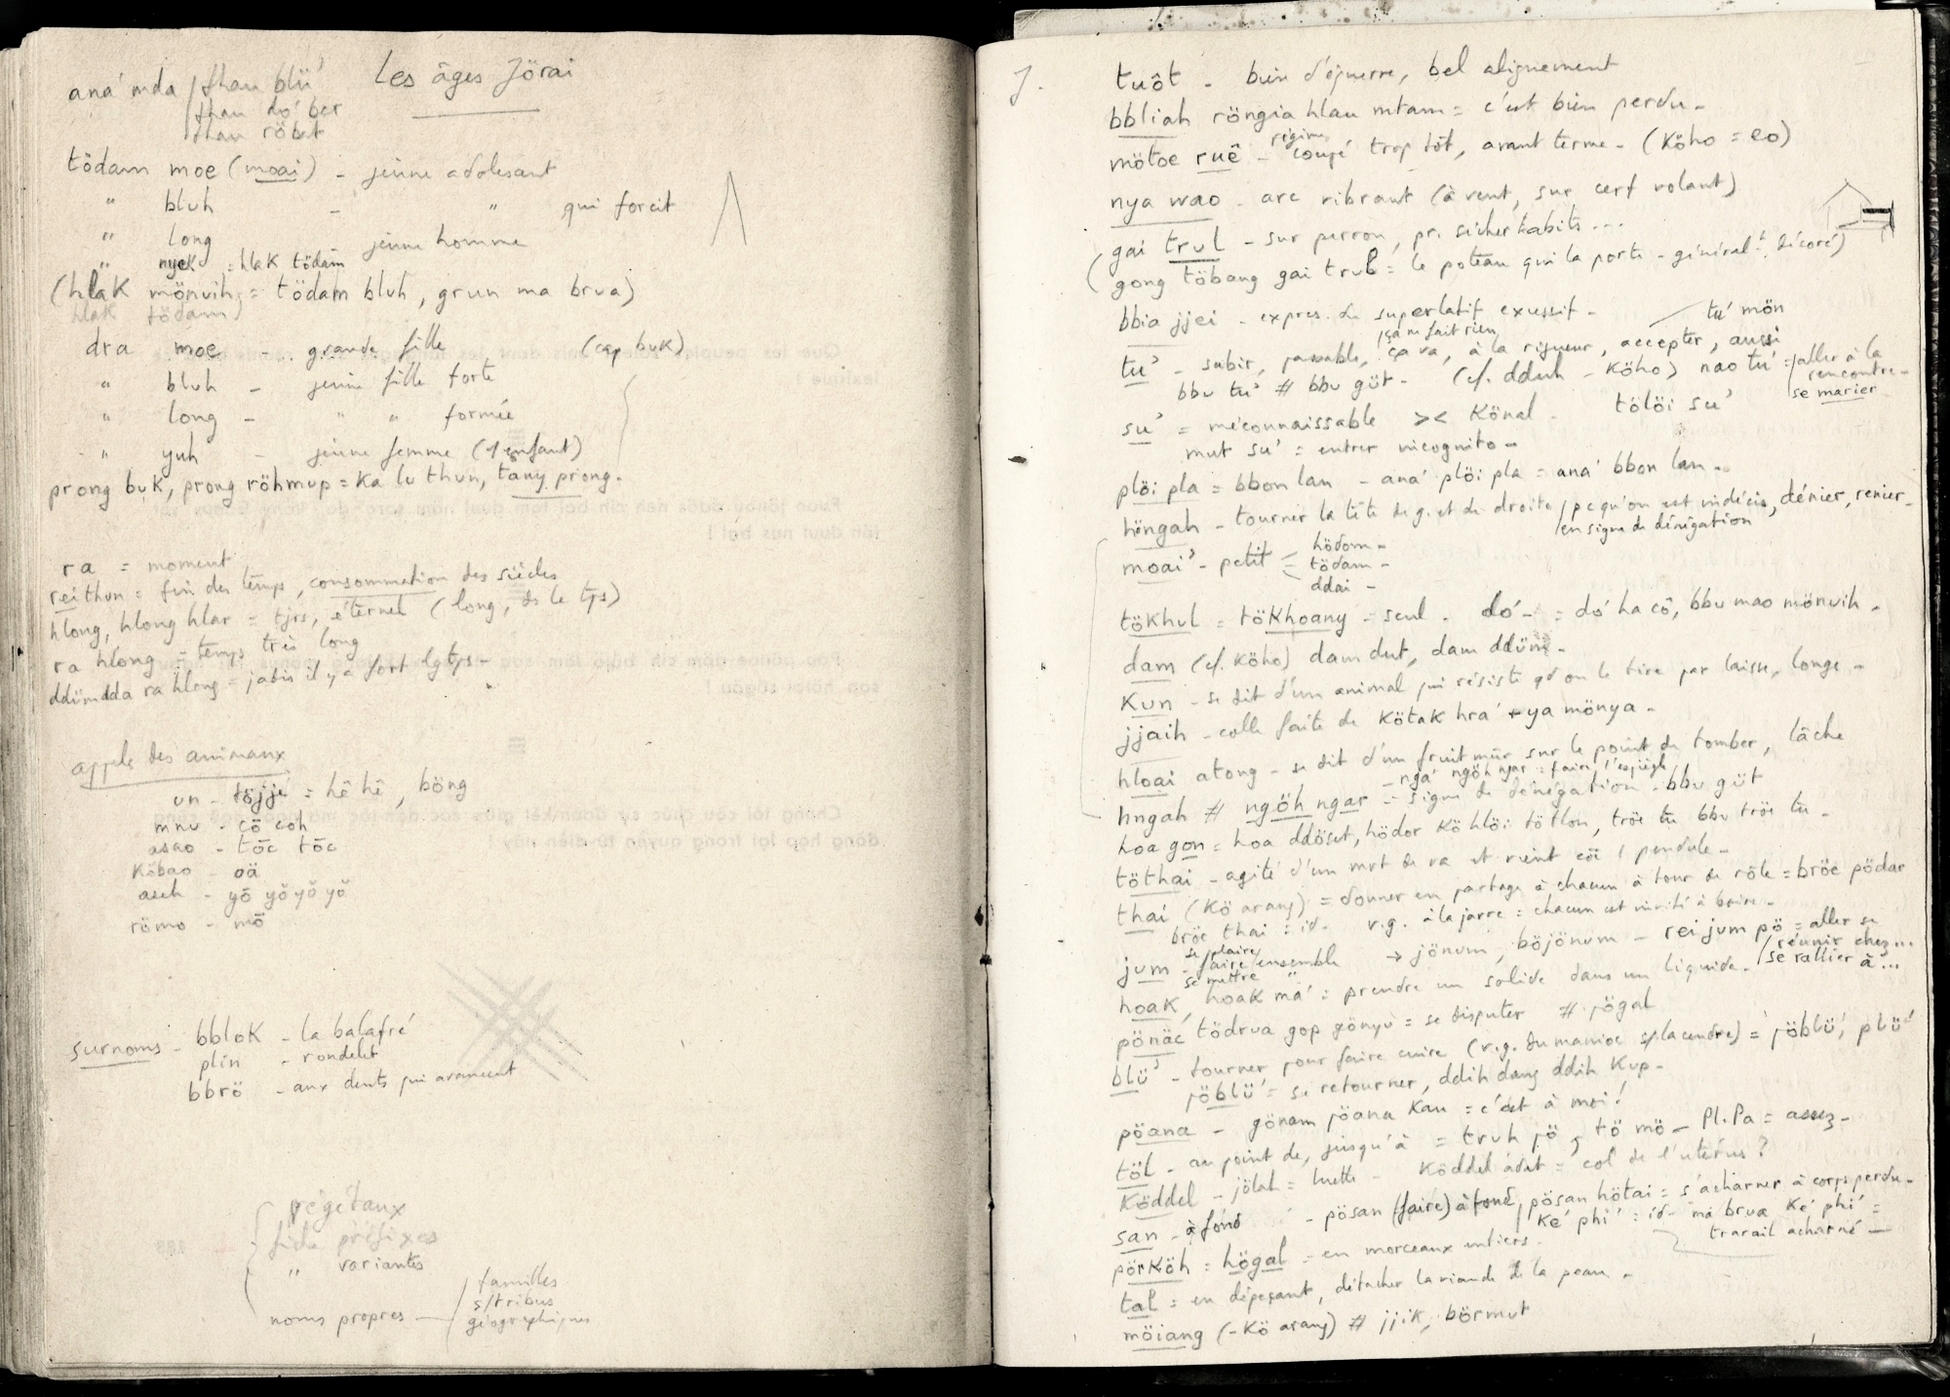 Les âges Jörai
ana' mda / thau blü'
thau do' ber
thau röbat
tödam moe (moai) - jeune adolesant
" bluh - " qui forcit
" long - jeune homme
" nyek = hlak tödam
(hlak mönuih = tödam bluh, grun ma brua)
hlak tödam
dra moe - grande fille (cap buk)
" bluh - jeune fille forte
" long - " " formée
" yuh - jeune femme (1 enfant)
prong buk, prong röhmup = ka lu thun, tany prong.
ra = moment
rei thun = fin des temps, consommation des siècles
hlong, hlong hlar = tjrs, éternel (long, ds le tps)
ra hlong = temps très long
ddüm dda ra hlong = jadis il y a fort lgtps -
appels des animaux
un - töjje = hê hê, böng
mnu - cö coh
asao - töc töc
köbao - oä
aseh - yö yö yö yö
römo - mö
surnoms - bblok - la balafré
plin - rondelet
bbrö - aux dents qui avancent
végétaux
fiche préfixes
" variantes
noms propres - familles
s/tribus
géographiques
J.
tuôt - bien d'équerre, bel alignement
bbliah röngia hlau mtam = c'est bien perdu -
mötoe ruê - régime coupé trop tôt, avant terme - (Köho = eo)
nya wao - arc vibrant (à vent, sur cerf volant)
gai trul - sur perron, pr. sécher habits ...
(gong töbang gai trul = le poteau qui la porte - généralt. décoré)
bbia jjei - expres. du superlatif excessif - tu' mön
tu' - subir, passable, ça va, à la rigueur, accepter, aussi
ça ne fait rien
bbu tu' # bbu güt - (cf. dduh - Köho) nao tu' = / aller à la rencontre -
se marier
su' = méconnaissable >< könal - tölöi su'
mut su' = entrer incognito -
plöi pla = bbon lan - ana' plöi pla = ana' bbon lan -
höngah - tourner la tête de g. et de droite / pcqu'on est indécis, dénier, renier -
/ en signe de dénégation
moai' - petit = hödom -
tödam -
ddai -
tökhul = tökhoany = seul. do' - = do' ha cô, bbu mao mönuih -
dam (cf. Köho) dam dut, dam ddüm -
kun - se dit d'un animal qui résiste qd on le tire par laisse, longe -
jjaih - colle faite de kötak hra' + ya mönya -
hloai atong - se dit d'un fruit mûr sur le point de tomber, lâche
- nga' ngöh ngar = faire l'espiègle
hngah # ngöh ngar = signe de dénégation - bbu güt
hoa gon = hoa ddöset, hödor kö hlöi tö tlon, tröe tu bbu tröe tu -
töthai - agité d'un mvt de va et vient cöi / pendule -
thai (kö arang) = donner en partage à chacun à tour de rôle = bröe pödar
bröe thai = id - v.g. à la jarre = chacun est invité à boire -
jum - se plaire
faire ensemble → jönum, böjönum - rei jum pö = aller se réunir chez...
se mettre " / se rallier à ...
hoak, hoak ma' = prendre un solide dans un liquide -
pönäc tödrua gop gönyu = se disputer # pögal
blü' - tourner pour faire cuire (v.g. du manioc s/la cendre) = pöblü', plü'
pöblü' = se retourner, ddih dang ddih kup -
pöana - gönam pöana kau = c'est à moi !
töl - au point de, jusqu'à = truh pö, tö mö - Pl. Pa = assez -
köddel - jölah = luette - köddel adat = col de l'utérus ?
san - à fond - pösan (faire) à fond, pösan hötai = s'acharner à corps perdu -
/ ke' phi' = id - ma brua ke' phi' =
travail acharné -
pörköh = högal = en morceaux entiers -
tal = en dépeçant, détacher la viande de la peau -
möiang (- kö arang) # jjik, börmut